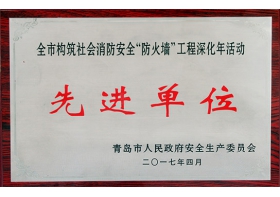 全市构筑社会消防安全“防火墙”工程深化年活动
先进单位
青岛市人民政府安全生产委员会
二〇一七年四月